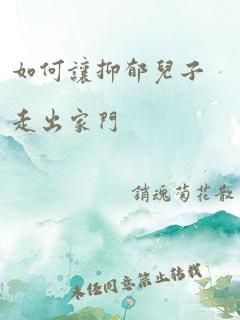 如何讓抑郁兒子
走出家門
銷魂菊花散
未经同意禁止转载